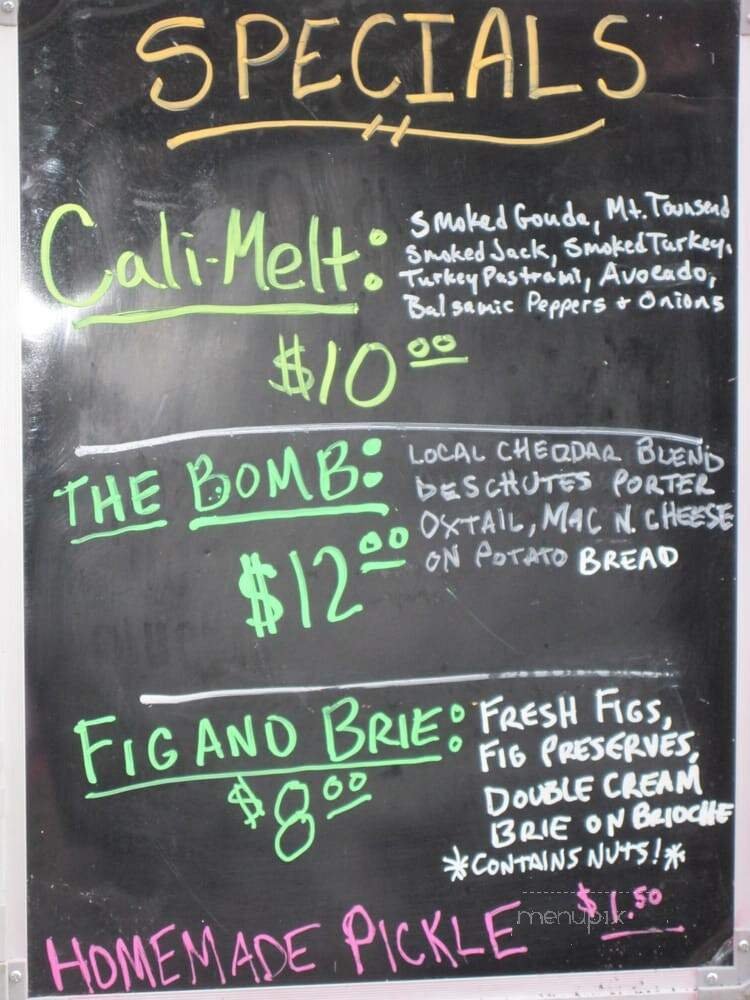 SPECIALS
Cali-Melt:
Smoked Gouda, Mt. Townsend
Smoked Jack, Smoked Turkey,
Turkey Pastrami, Avocado,
Balsamic Peppers + Onions
$10.00
THE BOMB:
LOCAL CHEDDAR BLEND
DESCHUTES PORTER
OXTAIL, MAC N. CHEESE
ON POTATO BREAD
$12.00
FIG AND BRIE:
FRESH FIGS,
FIG PRESERVES,
DOUBLE CREAM
BRIE ON BRIOCHE
*CONTAINS NUTS!*
$8.00
HOMEMADE PICKLE $1.50
menupix